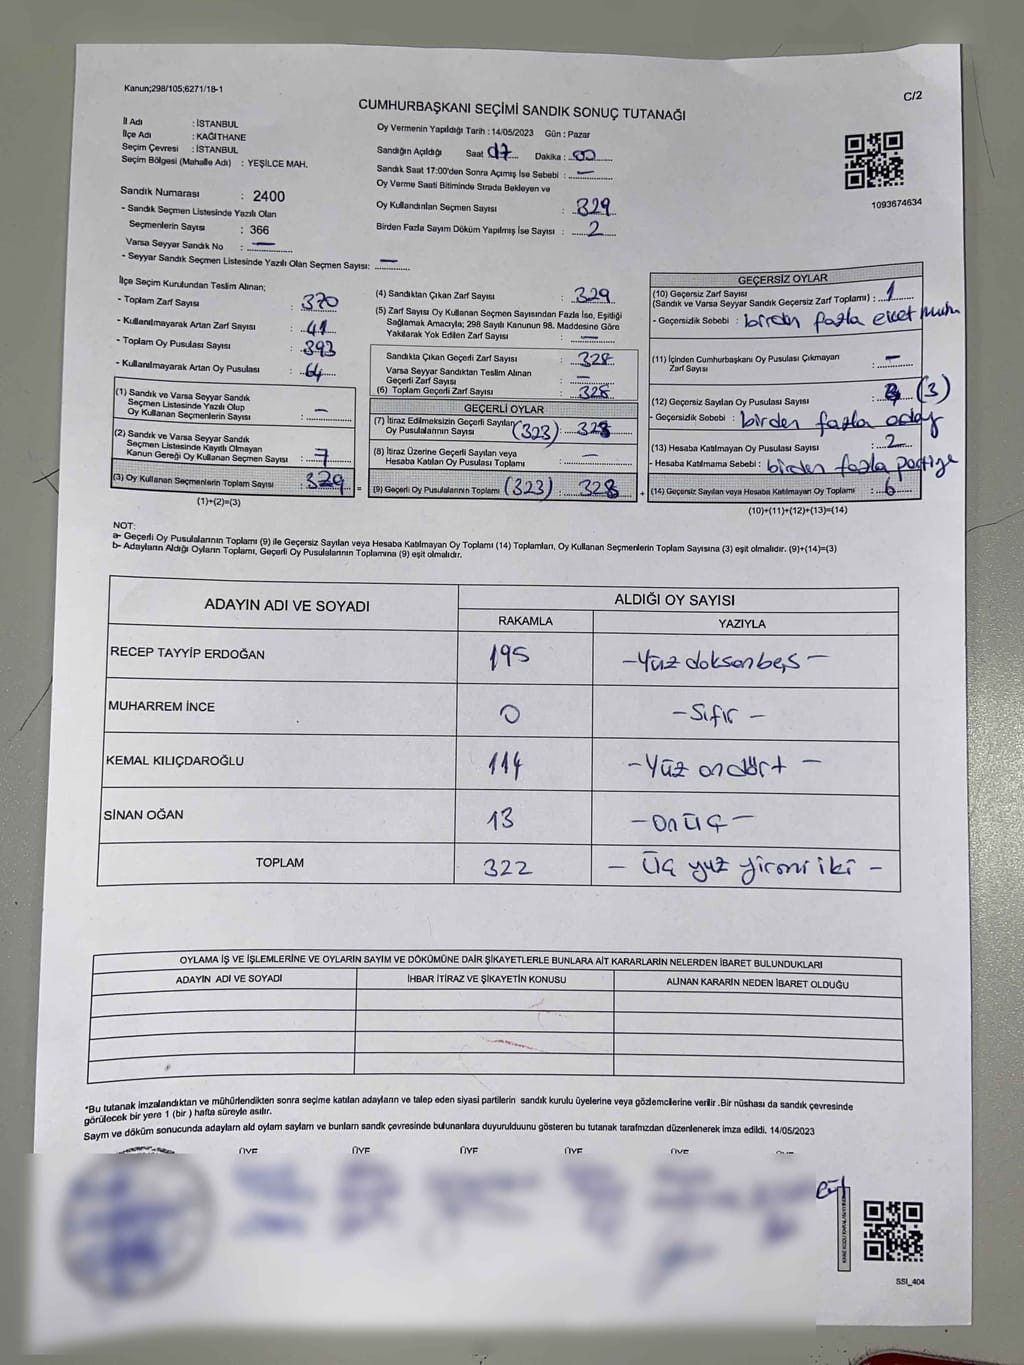 Kanun;298/105;6271/18-1
C/2
CUMHURBAŞKANI SEÇİMİ SANDIK SONUÇ TUTANAĞI
İl Adı : İSTANBUL
İlçe Adı : KAĞITHANE
Seçim Çevresi : İSTANBUL
Seçim Bölgesi (Mahalle Adı) : YEŞİLCE MAH.
Sandık Numarası : 2400
- Sandık Seçmen Listesinde Yazılı Olan
Seçmenlerin Sayısı : 366
Varsa Seyyar Sandık No : —
- Seyyar Sandık Seçmen Listesinde Yazılı Olan Seçmen Sayısı: —
Oy Vermenin Yapıldığı Tarih : 14/05/2023 Gün : Pazar
Sandığın Açıldığı Saat 17 Dakika : 00
Sandık Saat 17:00'den Sonra Açılmış İse Sebebi : —
Oy Verme Saati Bitiminde Sırada Bekleyen ve
Oy Kullandırılan Seçmen Sayısı : 329
Birden Fazla Sayım Döküm Yapılmış İse Sayısı : 2
1093674634
İlçe Seçim Kurulundan Teslim Alınan;
- Toplam Zarf Sayısı : 370
- Kullanılmayarak Artan Zarf Sayısı : 41
- Toplam Oy Pusulası Sayısı : 393
- Kullanılmayarak Artan Oy Pusulası : 64
(1) Sandık ve Varsa Seyyar Sandık
Seçmen Listesinde Yazılı Olup
Oy Kullanan Seçmenlerin Sayısı : —
(2) Sandık ve Varsa Seyyar Sandık
Seçmen Listesinde Kayıtlı Olmayan
Kanun Gereği Oy Kullanan Seçmen Sayısı : 7
(3) Oy Kullanan Seçmenlerin Toplam Sayısı : 329
(1)+(2)=(3)
=
(4) Sandıktan Çıkan Zarf Sayısı : 329
(5) Zarf Sayısı Oy Kullanan Seçmen Sayısından Fazla İse, Eşitliği
Sağlamak Amacıyla; 298 Sayılı Kanunun 98. Maddesine Göre
Yakılarak Yok Edilen Zarf Sayısı : —
Sandıkta Çıkan Geçerli Zarf Sayısı : 328
Varsa Seyyar Sandıktan Teslim Alınan
Geçerli Zarf Sayısı : —
(6) Toplam Geçerli Zarf Sayısı : 328
GEÇERLİ OYLAR
(7) İtiraz Edilmeksizin Geçerli Sayılan
Oy Pusulalarının Sayısı (323) : 328
(8) İtiraz Üzerine Geçerli Sayılan veya
Hesaba Katılan Oy Pusulası Toplamı : —
(9) Geçerli Oy Pusulalarının Toplamı (323) : 328
+
GEÇERSİZ OYLAR
(10) Geçersiz Zarf Sayısı
(Sandık ve Varsa Seyyar Sandık Geçersiz Zarf Toplamı) : 1
- Geçersizlik Sebebi : birden fazla evet
(11) İçinden Cumhurbaşkanı Oy Pusulası Çıkmayan
Zarf Sayısı : —
(12) Geçersiz Sayılan Oy Pusulası Sayısı : (3)
- Geçersizlik Sebebi : birden fazla aday
(13) Hesaba Katılmayan Oy Pusulası Sayısı : 2
- Hesaba Katılmama Sebebi : birden fazla partiye
(14) Geçersiz Sayılan veya Hesaba Katılmayan Oy Toplamı : 6
(10)+(11)+(12)+(13)=(14)
NOT:
a- Geçerli Oy Pusulalarının Toplamı (9) ile Geçersiz Sayılan veya Hesaba Katılmayan Oy Toplamı (14) Toplamları, Oy Kullanan Seçmenlerin Toplam Sayısına (3) eşit olmalıdır. (9)+(14)=(3)
b- Adayların Aldığı Oyların Toplamı, Geçerli Oy Pusulalarının Toplamına (9) eşit olmalıdır.
ADAYIN ADI VE SOYADI
ALDIĞI OY SAYISI
RAKAMLA YAZIYLA
RECEP TAYYİP ERDOĞAN 195 — Yüz doksanbeş —
MUHARREM İNCE 0 — Sıfır —
KEMAL KILIÇDAROĞLU 114 — Yüz ondört —
SİNAN OĞAN 13 — onüç —
TOPLAM 322 — Üç yüz yirmi iki —
OYLAMA İŞ VE İŞLEMLERİNE VE OYLARIN SAYIM VE DÖKÜMÜNE DAİR ŞİKAYETLERLE BUNLARA AİT KARARLARIN NELERDEN İBARET BULUNDUKLARI
ADAYIN ADI VE SOYADI İHBAR İTİRAZ VE ŞİKAYETİN KONUSU ALINAN KARARIN NEDEN İBARET OLDUĞU
*Bu tutanak imzalandıktan ve mühürlendikten sonra seçime katılan adayların ve talep eden siyasi partilerin sandık kurulu üyelerine veya gözlemcilerine verilir .Bir nüshası da sandık çevresinde
görülecek bir yere 1 (bir ) hafta süreyle asılır.
Sayım ve döküm sonucunda adayların aldı oyların sayıları ve bunların sandık çevresinde bulunanlara duyurulduunu gösteren bu tutanak tarafımızdan düzenlenerek imza edildi. 14/05/2023
ÜYE ÜYE ÜYE ÜYE ÜYE
SSI_404